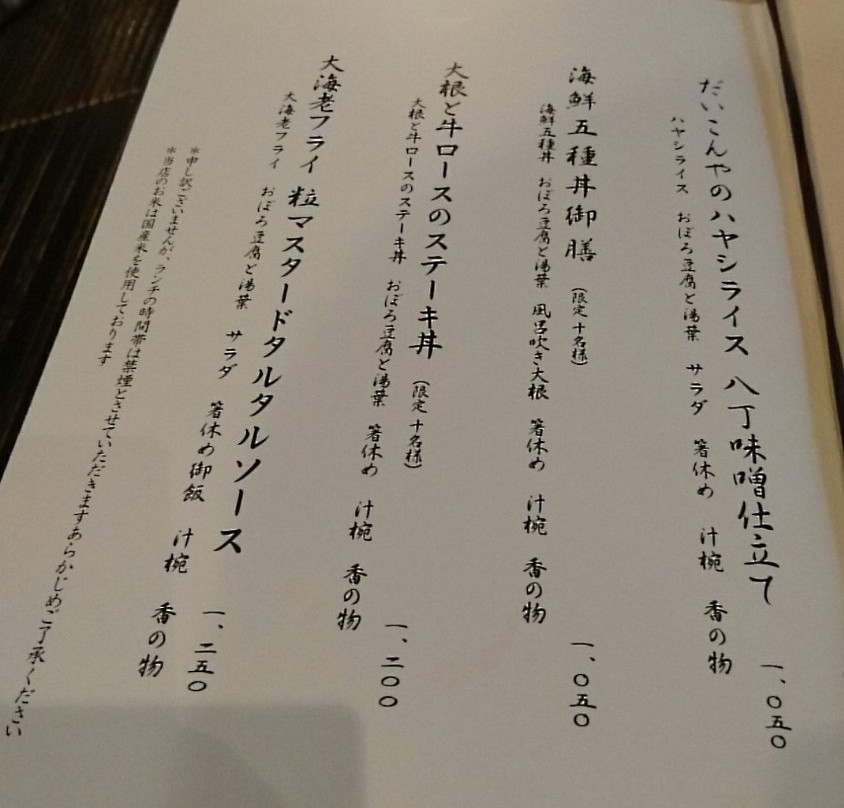 だいこんやのハヤシライス 八丁味噌仕立て
一、〇五〇
ハヤシライス おぼろ豆腐と湯葉 サラダ 箸休め 汁椀 香の物
海鮮五種丼御膳 (限定 十名様)
一、〇五〇
海鮮五種丼 おぼろ豆腐と湯葉 風呂吹き大根 箸休め 汁椀 香の物
大根と牛ロースのステーキ丼 (限定 十名様)
一、二〇〇
大根と牛ロースのステーキ丼 おぼろ豆腐と湯葉 箸休め 汁椀 香の物
大海老フライ 粒マスタードタルタルソース
一、二五〇
大海老フライ おぼろ豆腐と湯葉 サラダ 箸休め 御飯 汁椀 香の物
*申し訳ございませんが、ランチの時間帯は禁煙とさせていただきますあらかじめご了承ください
*当店のお米は国産米を使用しております